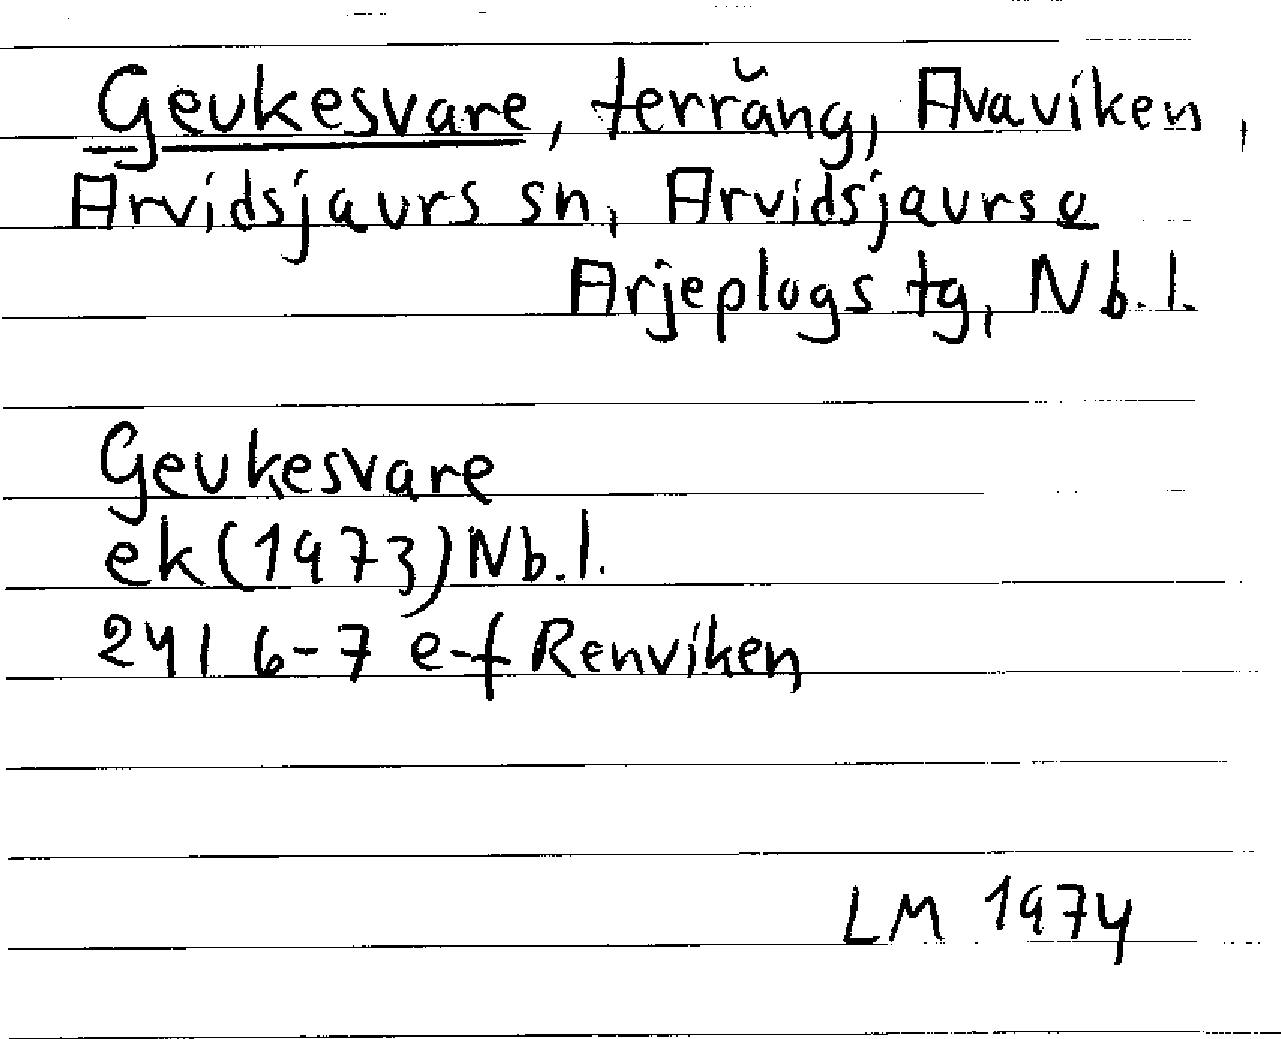 Geukesvare, terräng, Avaviken,
Arvidsjaurs sn, Arvidsjaurs o
Arjeplogs tg, Nb.l.
Geukesvare
ek (1973) Nb.l.
24 I 6-7 e-f Renviken
LM 1974